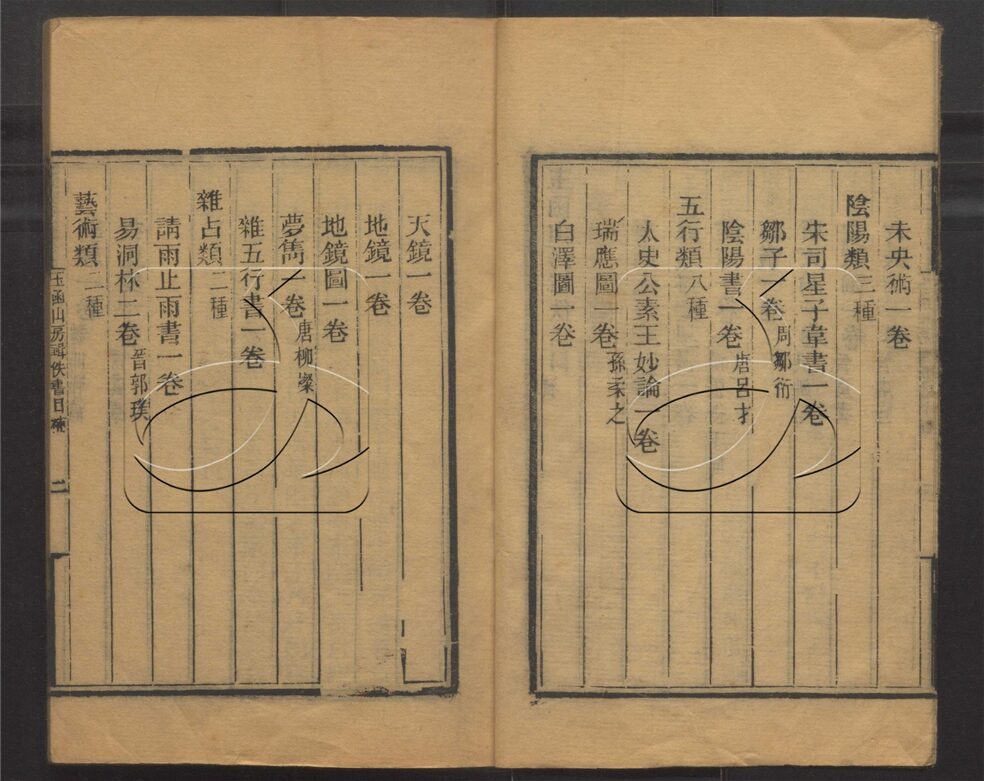 未央術一卷
陰陽類三種
宋司星子韋書一卷
鄒子一卷周鄒衍
陰陽書一卷唐呂才
五行類八種
太史公素王妙論一卷
瑞應圖一卷孫柔之
白澤圖一卷
天鏡一卷
地鏡一卷
地鏡圖一卷
夢雋一卷唐柳燦
雜五行書一卷
雜占類二種
請雨止雨書一卷
易洞林二卷晉郭璞
藝術類二種
玉函山房輯佚書目 二